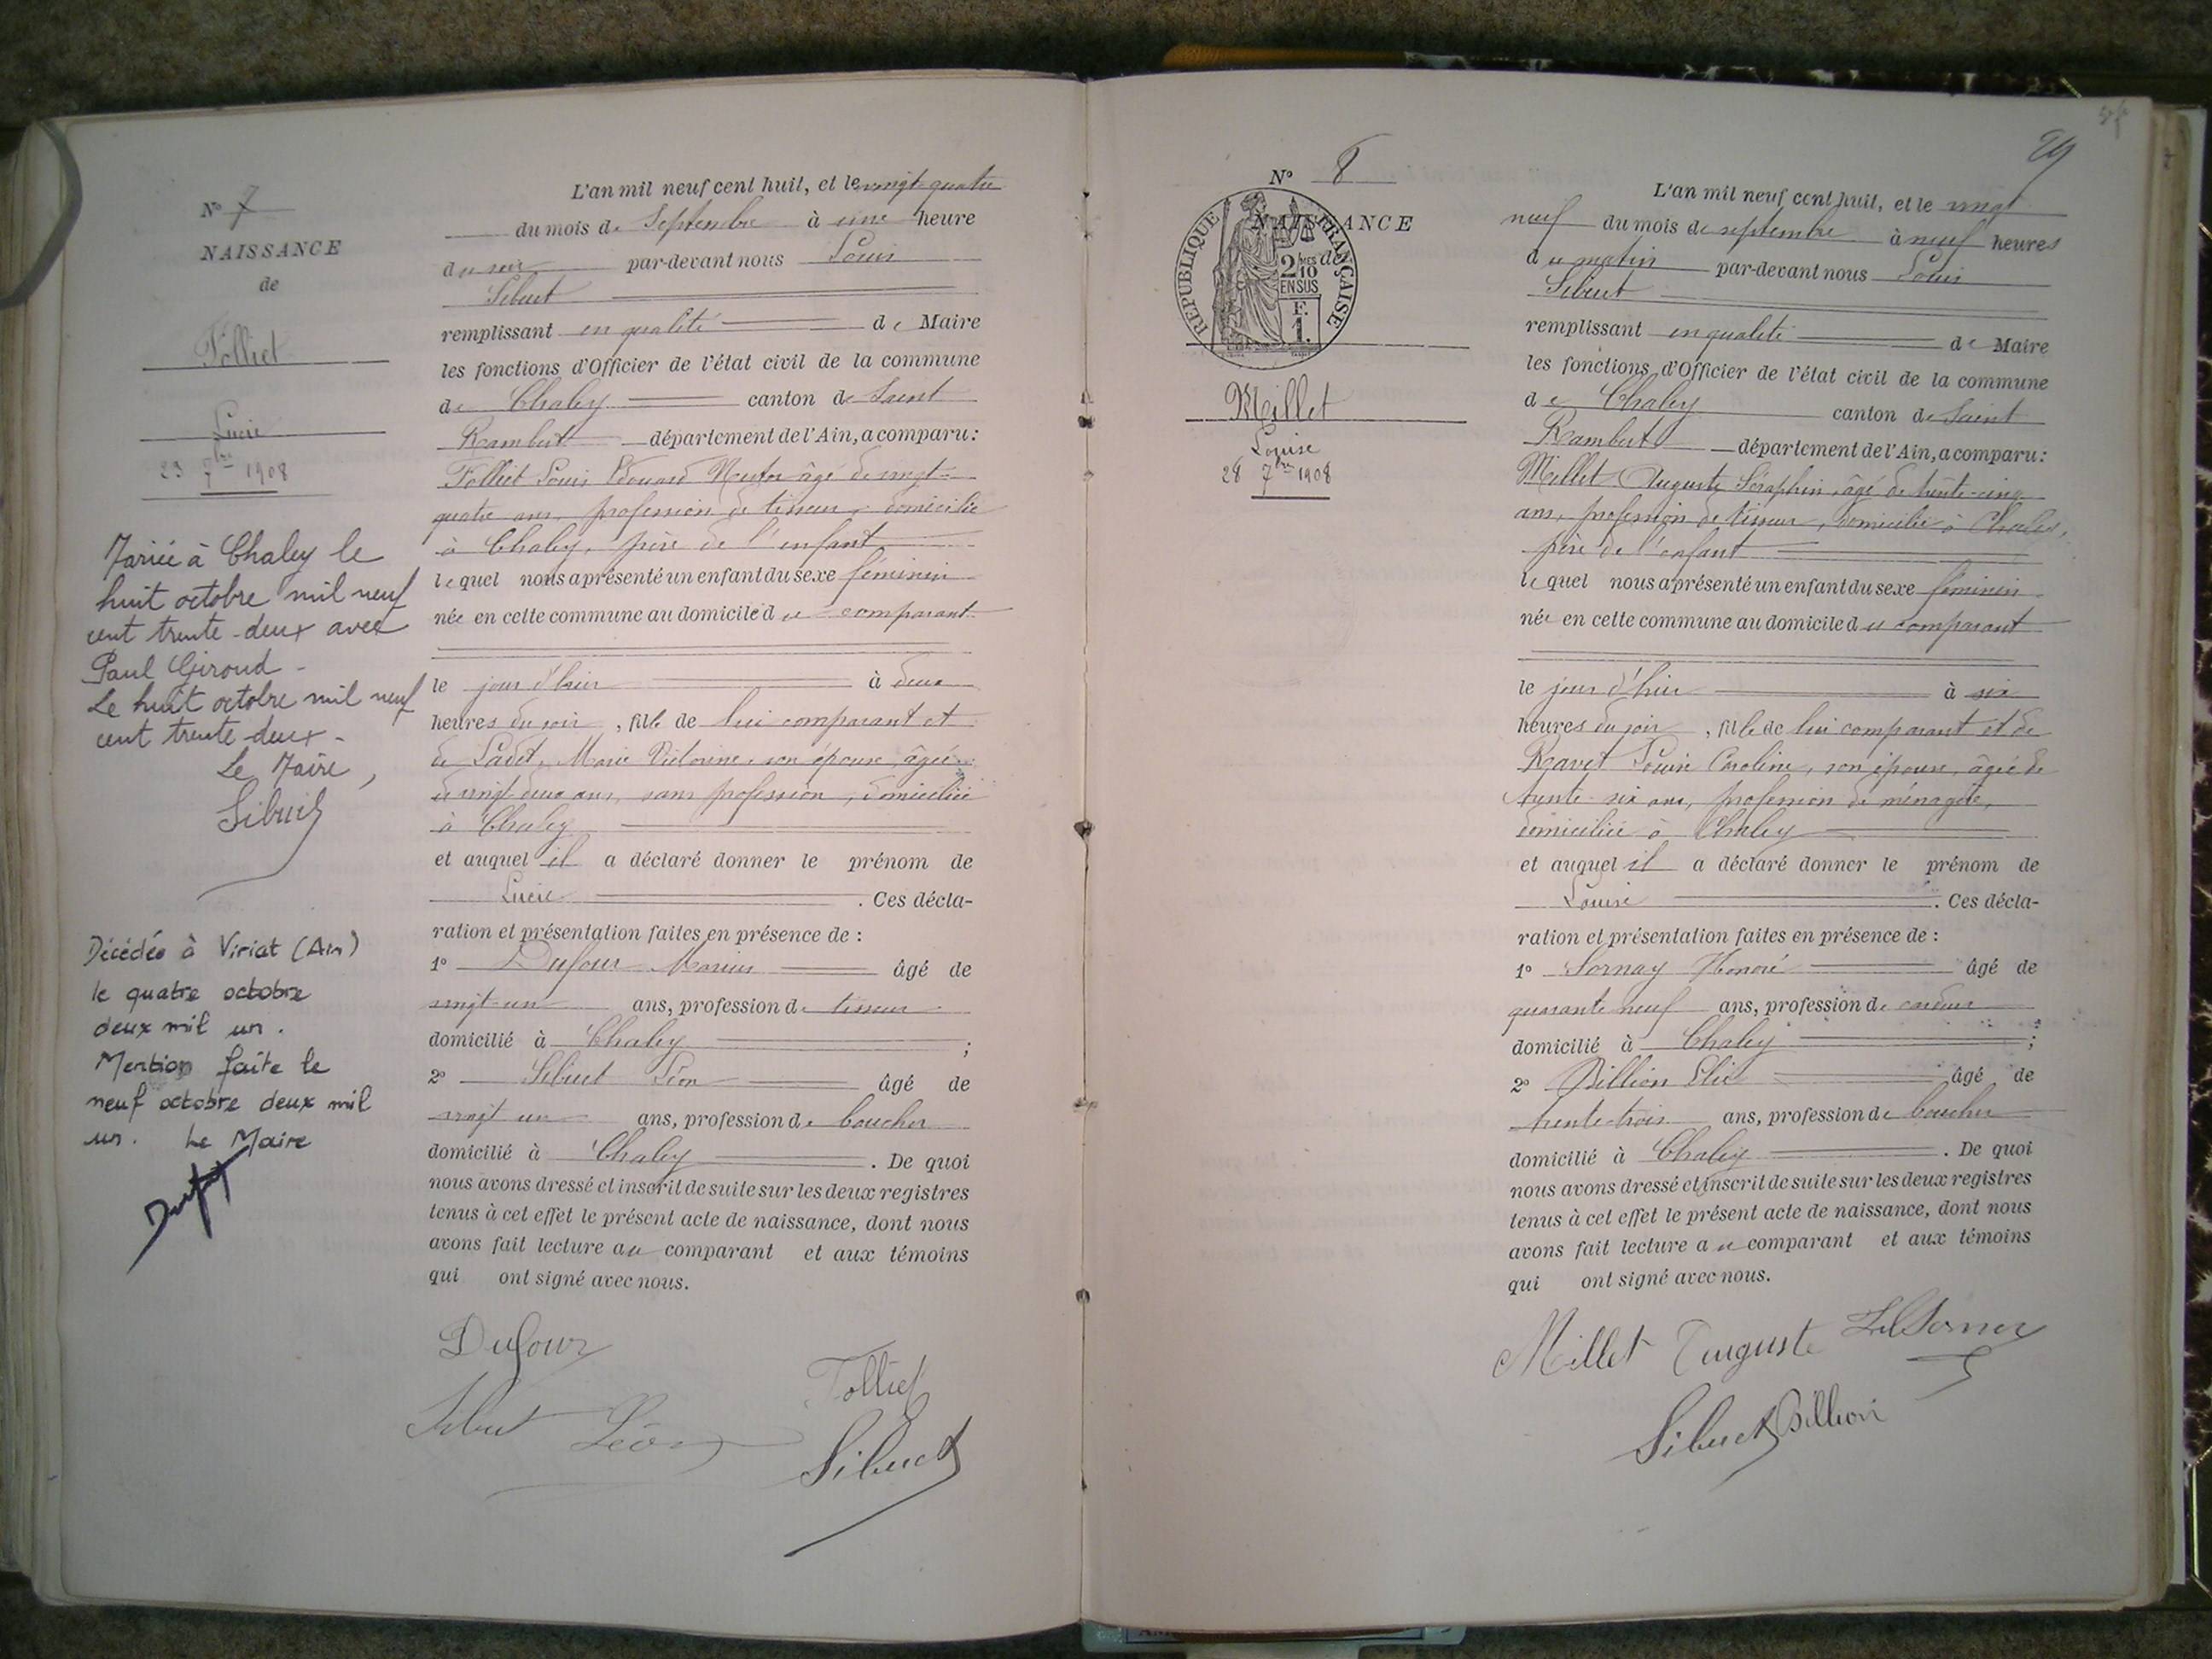 N° 7
NAISSANCE
de
Folliet
Lucie
23 7bre 1908
Mariée à Chaley le
huit octobre mil neuf
cent trente-deux avec
Paul Giroud -
Le huit octobre mil neuf
cent trente-deux -
Le Maire,
Sibuet
Décédée à Viriat (Ain)
le quatre octobre
deux mil un.
Mention faite le
neuf octobre deux mil
un. Le Maire
L'an mil neuf cent huit, et le vingt-quatre
du mois de Septembre à une heure
du soir par-devant nous Louis
Sibuet
remplissant en qualité de Maire
les fonctions d'Officier de l'état civil de la commune
de Chaley canton de Saint
Rambert département de l'Ain, a comparu :
Folliet Louis Edouard âgé de vingt-
quatre ans, profession de tisseur, domicilié
à Chaley, père de l'enfant
lequel nous a présenté un enfant du sexe féminin
née en cette commune au domicile du comparant
le jour d'hier à deux
heures du soir, fille de lui comparant et
de Ladet, Marie Victorine, son épouse, âgée
de vingt deux ans, sans profession, domiciliée
à Chaley
et auquel il a déclaré donner le prénom de
Lucie. Ces décla-
ration et présentation faites en présence de :
1° Dufour Marius âgé de
vingt-un ans, profession de tisseur
domicilié à Chaley ;
2° Sibuet Léon âgé de
vingt un ans, profession de boucher
domicilié à Chaley. De quoi
nous avons dressé et inscrit de suite sur les deux registres
tenus à cet effet le présent acte de naissance, dont nous
avons fait lecture au comparant et aux témoins
qui ont signé avec nous.
Dufour
Folliet
Sibuet Léon
Sibuet
29
N° 8
NAISSANCE
de
REPUBLIQUE FRANÇAISE
2/10 MES
EN SUS
F.
1.
Millet
Louise
28 7bre 1908
L'an mil neuf cent huit, et le vingt
neuf du mois de septembre à neuf heures
du matin par-devant nous Louis
Sibuet
remplissant en qualité de Maire
les fonctions d'Officier de l'état civil de la commune
de Chaley canton de Saint
Rambert département de l'Ain, a comparu :
Millet Auguste Séraphin, âgé de trente-cinq
ans, profession de tisseur, domicilié à Chaley,
père de l'enfant
lequel nous a présenté un enfant du sexe féminin
née en cette commune au domicile du comparant
le jour d'hier à six
heures du soir, fille de lui comparant et de
Ravet Louise Caroline, son épouse, âgée de
trente-six ans, profession de ménagère,
domiciliée à Chaley
et auquel il a déclaré donner le prénom de
Louise. Ces décla-
ration et présentation faites en présence de :
1° Sornay Honoré âgé de
quarante neuf ans, profession de cardeur
domicilié à Chaley ;
2° Billion Elie âgé de
trente-trois ans, profession de boucher
domicilié à Chaley. De quoi
nous avons dressé et inscrit de suite sur les deux registres
tenus à cet effet le présent acte de naissance, dont nous
avons fait lecture au comparant et aux témoins
qui ont signé avec nous.
Millet Auguste
Sibuet Billion